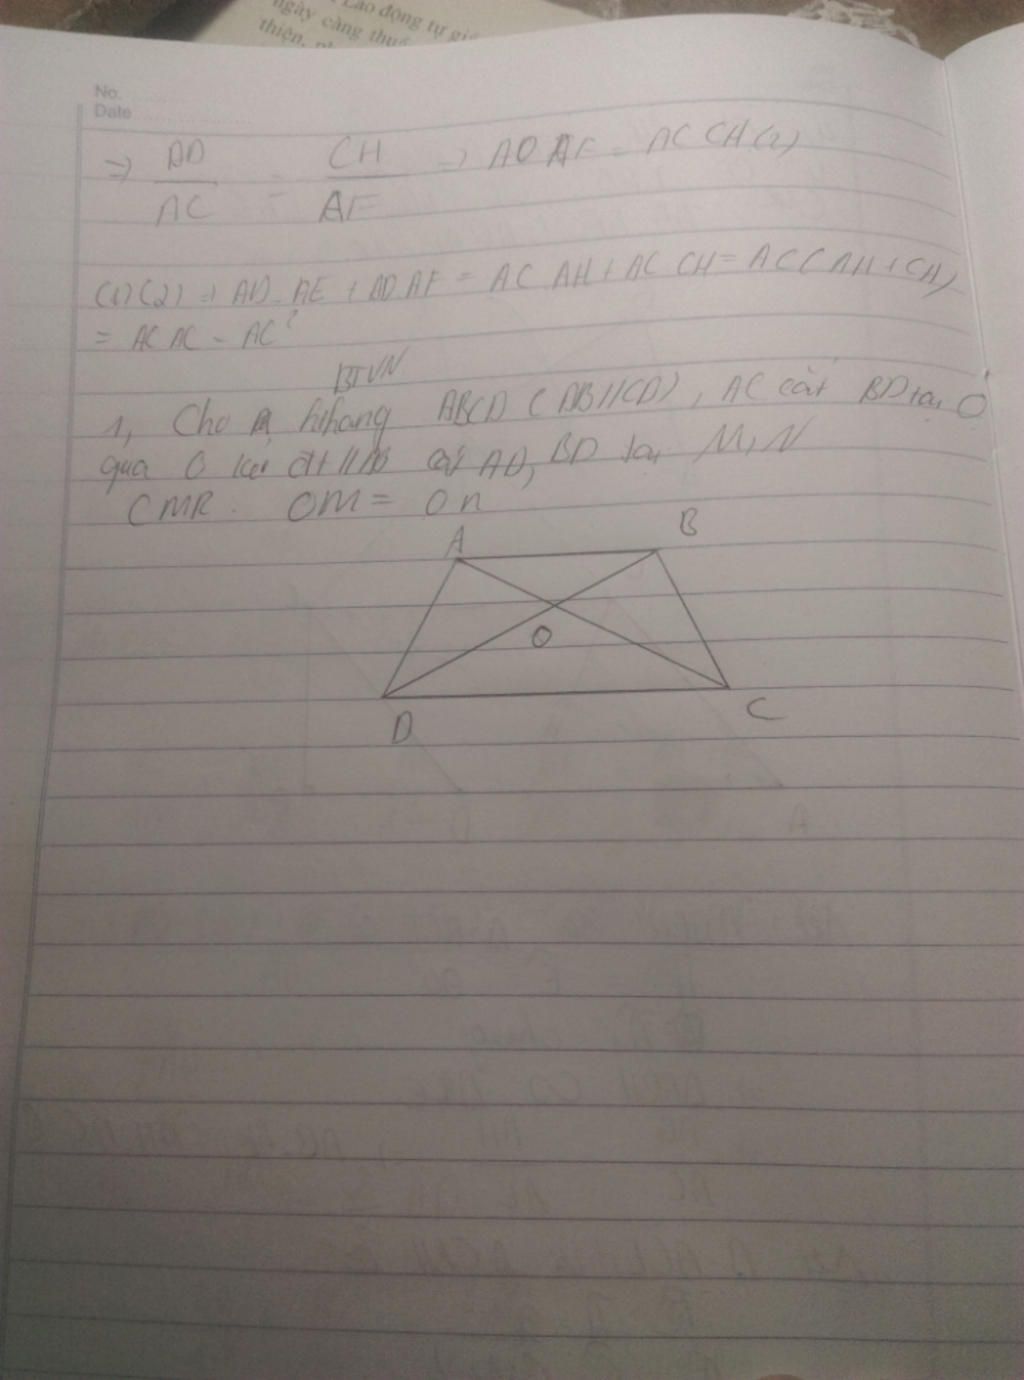 Lao động tự gi
ngày càng thu
thiện, ph
No.
Date
=> AD/AC = CH/AF => AD AF = AC CH (2)
(1) (2) => AD. AE + AD AF = AC AH + AC CH = AC (AH + CH)
= AC AC = AC²
BTVN
1, Cho hthang ABCD (AB//CD), AC cắt BD tại O
qua O kẻ đt // AB cắt AD, BD tại M, N
CMR. OM = On
A
B
O
D
C